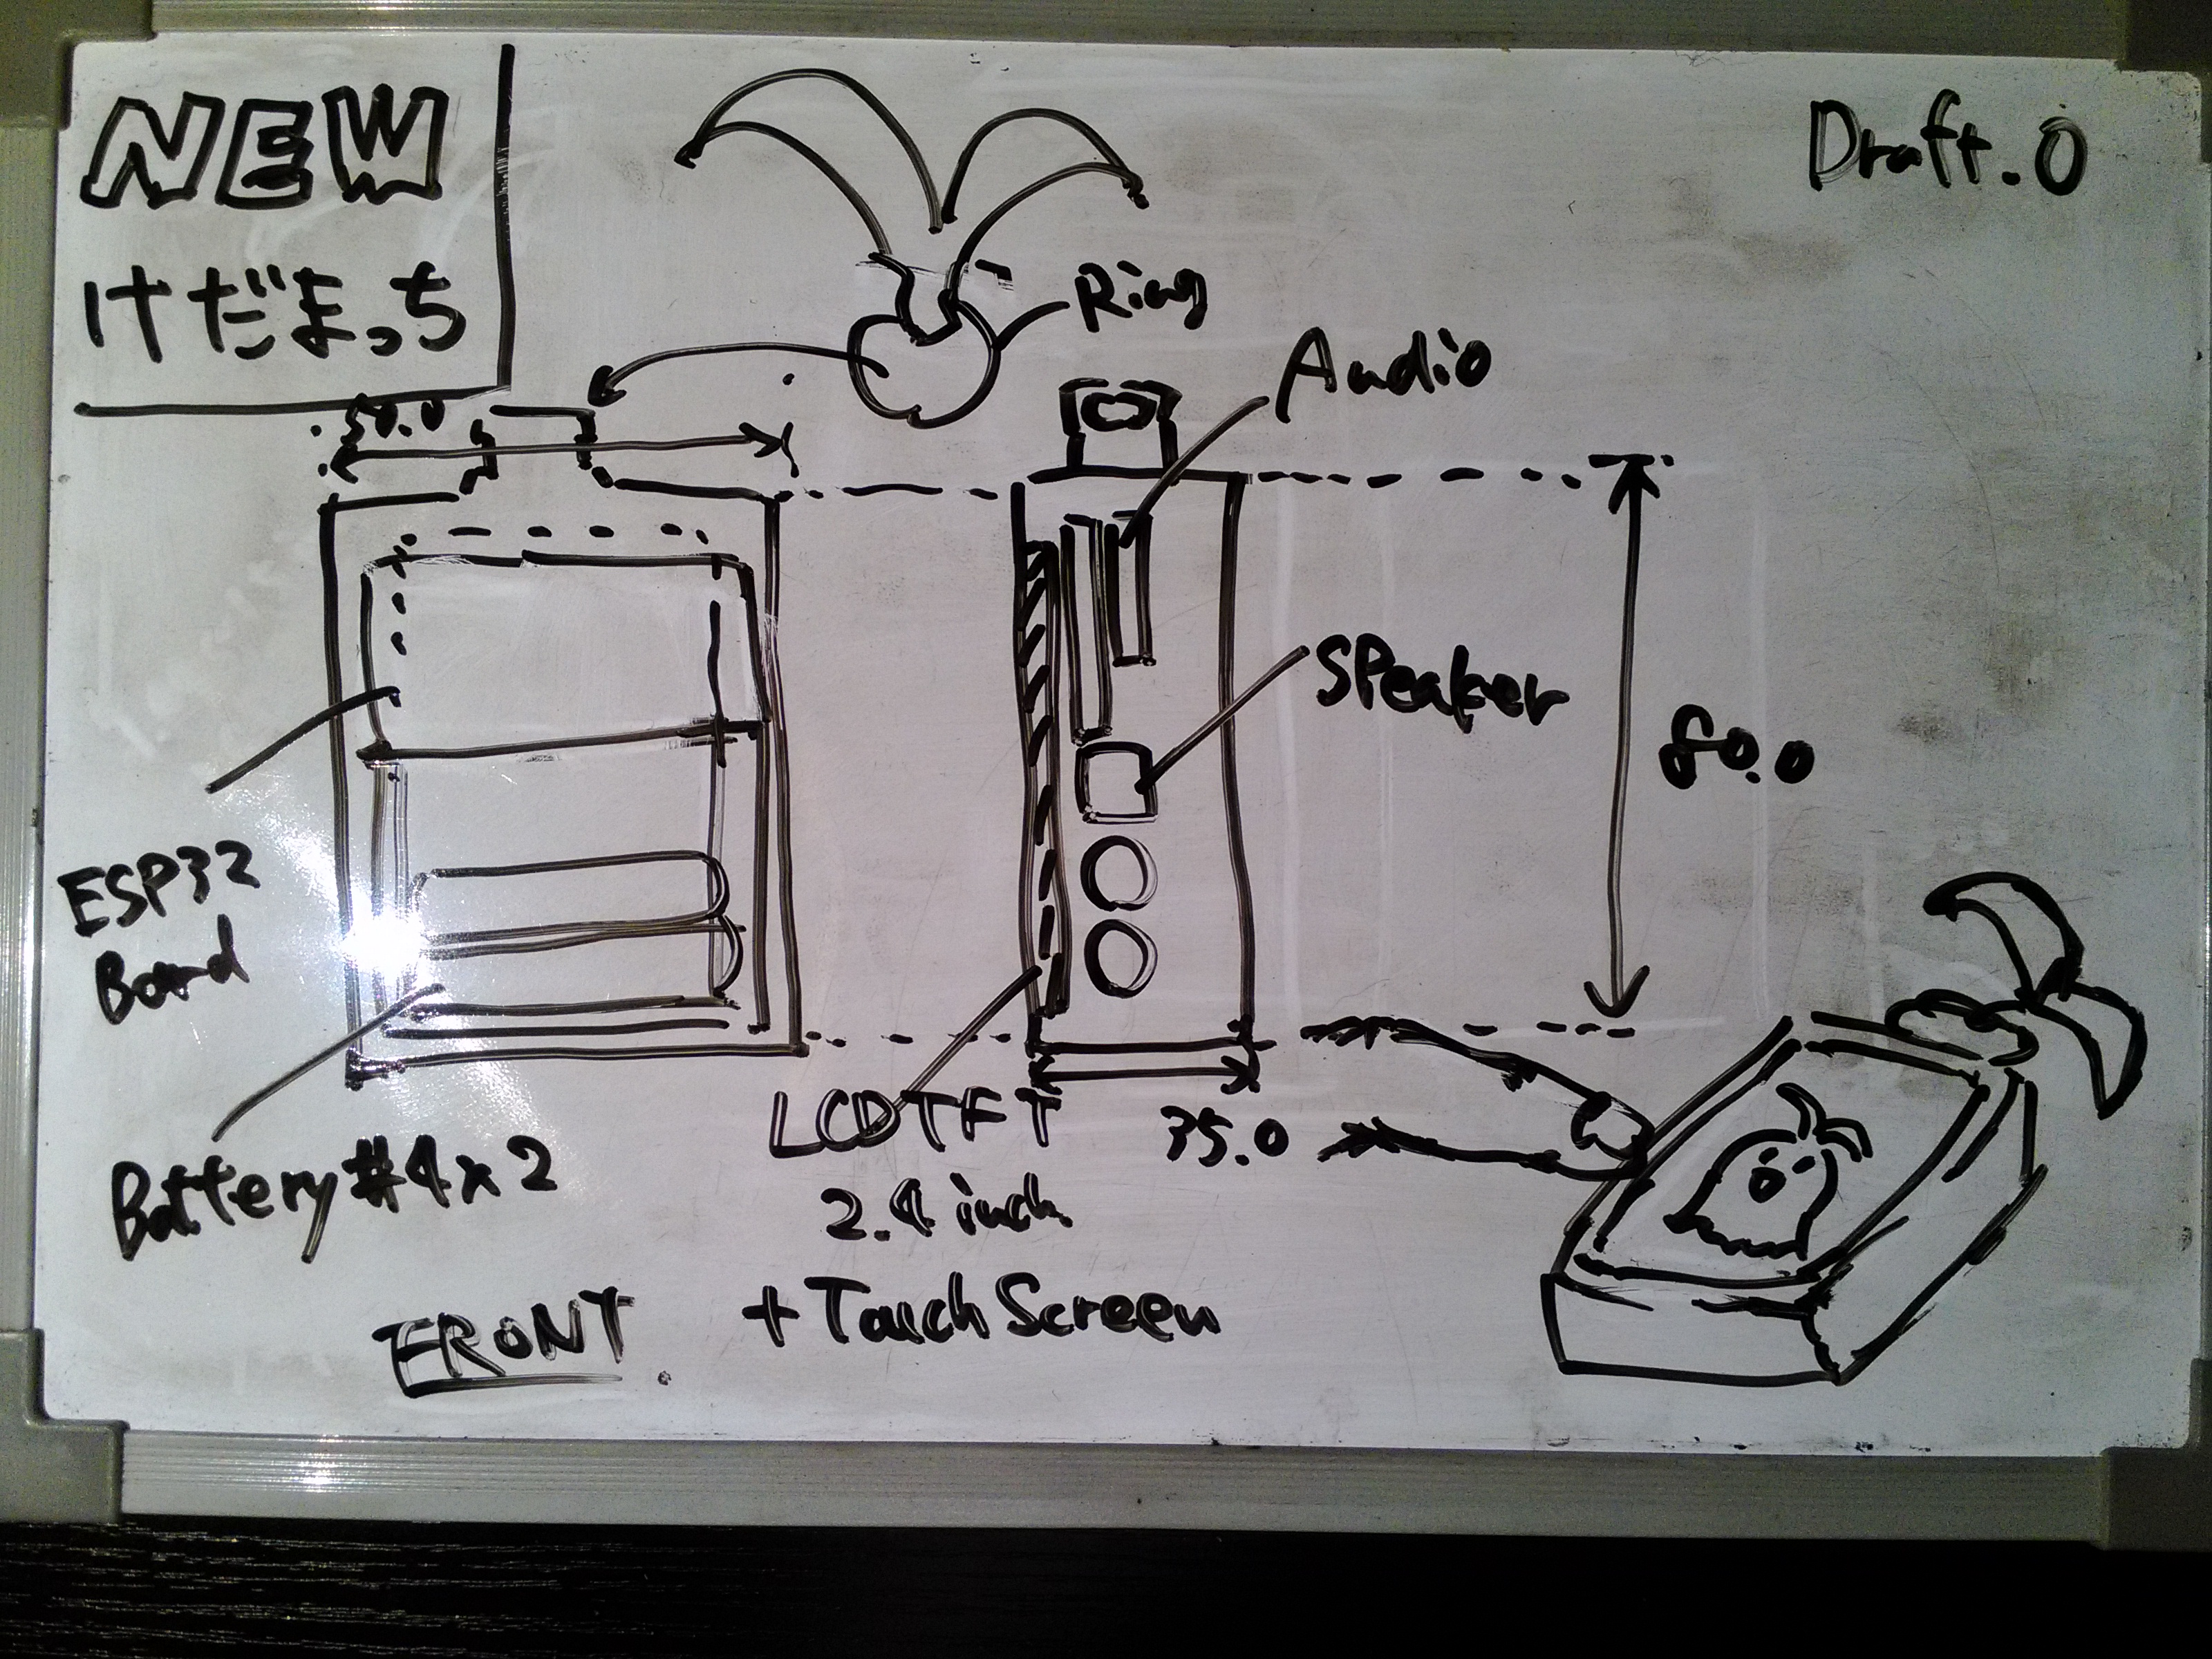 NEW
けだまっち
Draft.0
Ring
Audio
50.0
Speaker
80.0
ESP32
Board
Battery#4x2
LCDTFT
2.4 inch
+Touch Screen
35.0
FRONT